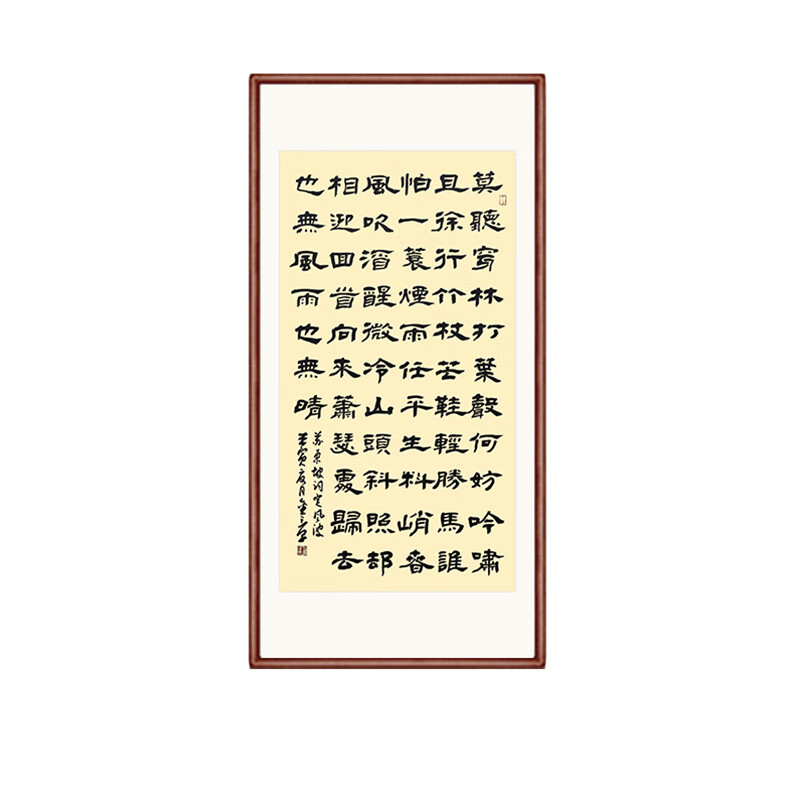 莫聽穿林打葉聲何妨吟嘯
且徐行竹杖芒鞋輕勝馬誰
怕一蓑煙雨任平生料峭春
風吹酒醒微冷山頭斜照却
相迎回首向來蕭瑟處歸去
也無風雨也無晴
苏东坡词定风波
壬寅夏月